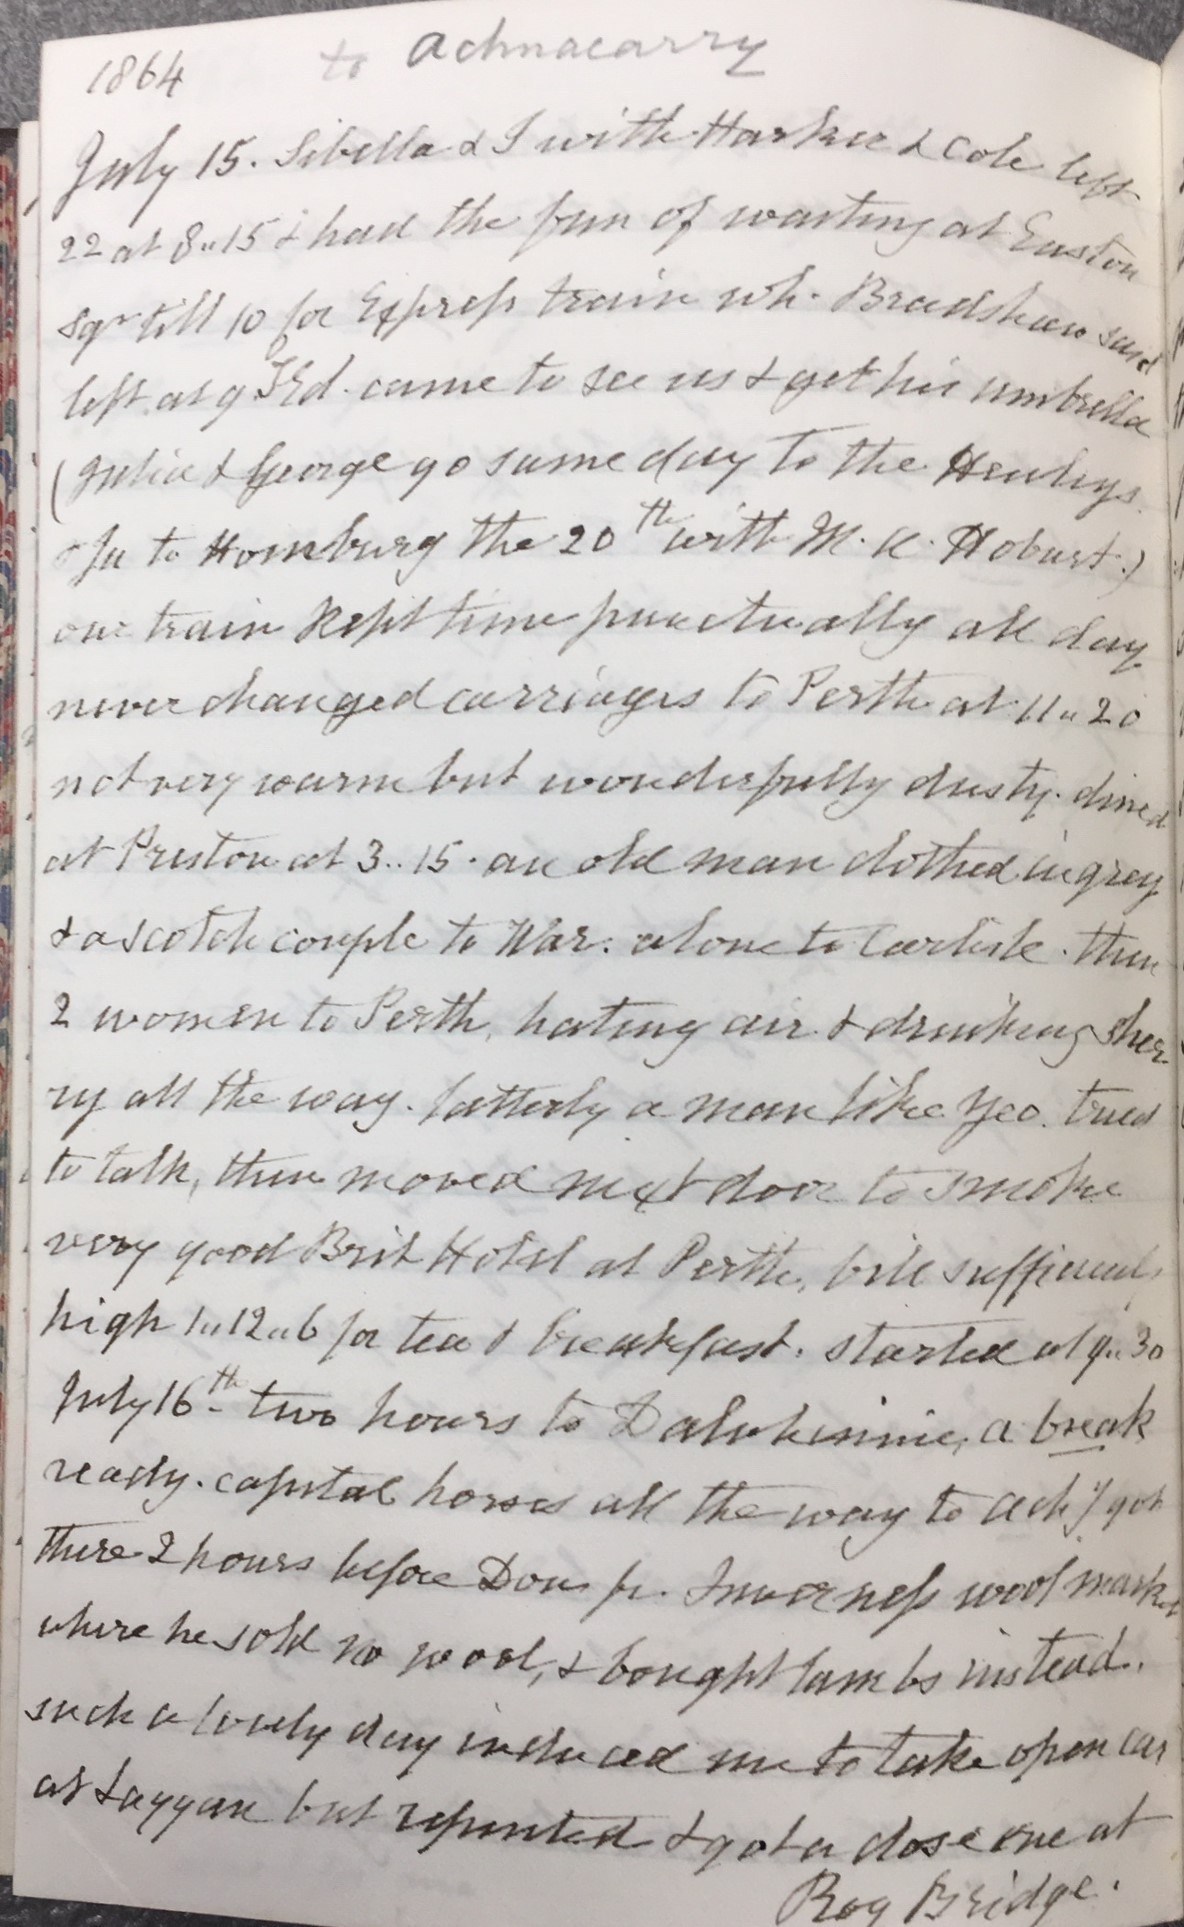 1864
to Achnacarry
July 15. Sibella & I with Harker & Cole left
22 at 8..15 & had the fun of waiting at Euston
Sqr till 10 for Express train wh. Bradshaw said
left at 9 Ed. came to see us & get his umbrella
(Julia & George go same day to the Henleys
& Ju to Homburg the 20th with M. K. Hobart.)
our train kept time punctually all day
never changed carriages to Perth at 11..20
not very warm but wonderfully dusty. dined
at Preston at 3..15. an old man clothed in grey
& a scotch couple to War: alone to Carlisle. then
2 women to Perth, hating air & drinking sher-
ry all the way. latterly a man like Yeo. tried
to talk, then moved next door to smoke
very good Brit Hotel at Perth, bill sufficiently
high 1..12..6 for tea & breakfast. started at 9..30
July 16th two hours to Dalwhinnie, a break
ready. capital horses all the way to Achy got
there 2 hours before Don fr. Inverness wool market
where he sold no wool, & bought lambs instead.
such a lovely day induced me to take open car
at Laggan but repented & got a close one at
Roy Bridge.